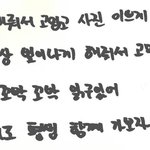 해줘서 고맙고 사진 이쁘게
일어나게 해줘서 고마
꼬박 꼬박 읽구있어
평생 함께 가보자